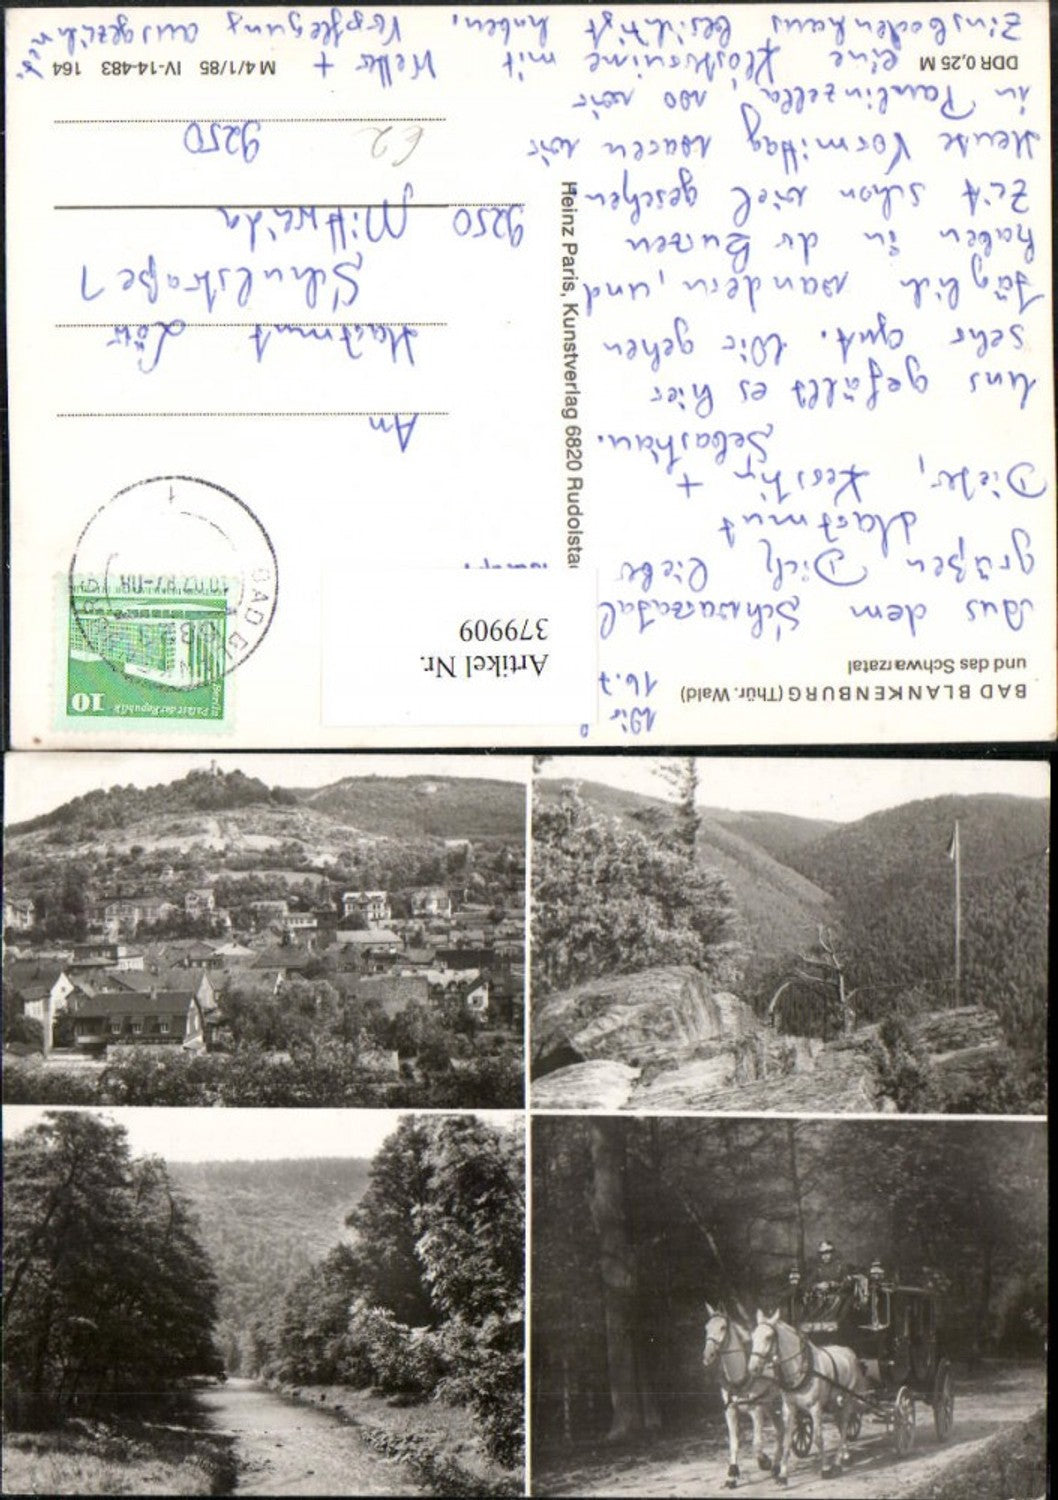 BAD BLANKENBURG (Thür. Wald)
und das Schwarzatal
Wir
16.7
Aus dem Schwarzatal
grüßen Dich, lieber
Hartmut
Dieter, Kerstin +
Sebastian.
Uns gefällt es hier
sehr gut. Wir gehen
täglich wandern, und
haben in der kurzen
Zeit schon viel gesehen
Heute Vormittag waren wir
in Paulinzella, wo wir
eine Klosterruine mit
Zinsbodenhaus besichtigt haben.
Wetter +
Verpflegung ausgezeichnet
DDR 0,25 M
M 4/1/85 IV-14-483 164
Heinz Paris, Kunstverlag 6820 Rudolsta
Artikel Nr.
379909
10
Berlin
Palast der Republik
BAD BLANKEN
1
An
Hartmut Löw
Schulstraße 1
9250 Mittweida
9250
€2